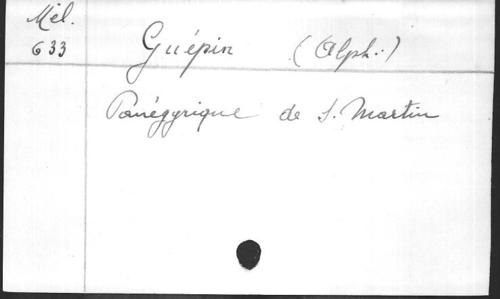 Mél.
633
Guépin (Alph.)
Panégyrique de S. Martin